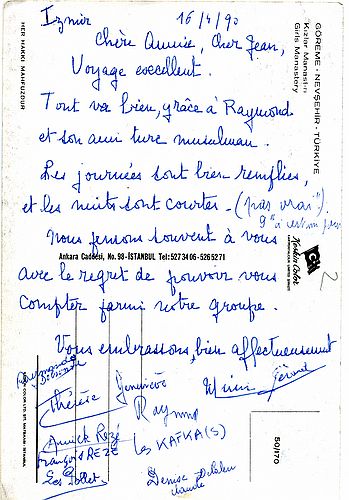 Izmir 16/4/90
Chère Annie, Cher Jean,
Voyage excellent.
Tout va bien, grâce à Raymond
et son ami turc musulman.
Les journées sont bien remplies,
et les nuits sont courtes. (pas vrai"!)
Nous pensons souvent à vous
Ankara Caddesi, No. 98-İSTANBUL Tel: 527 34 06 - 526 52 71
avec le regret de pouvoir vous
compter parmi notre groupe.
Vous embrassons, bien affectueusement
Raymonde
Thérèse
Geneviève
Mimi Gérard
Raymond
Annick Rezé
François REZÉ
Les KATKA(S)
Les Pollet.
Denise
Claude
GÖREME - NEVŞEHİR - TÜRKİYE
Kızlar Manastırı
Girls Monastery
HER HAKKI MAHFUZDUR
Keskin Color
2
50/170